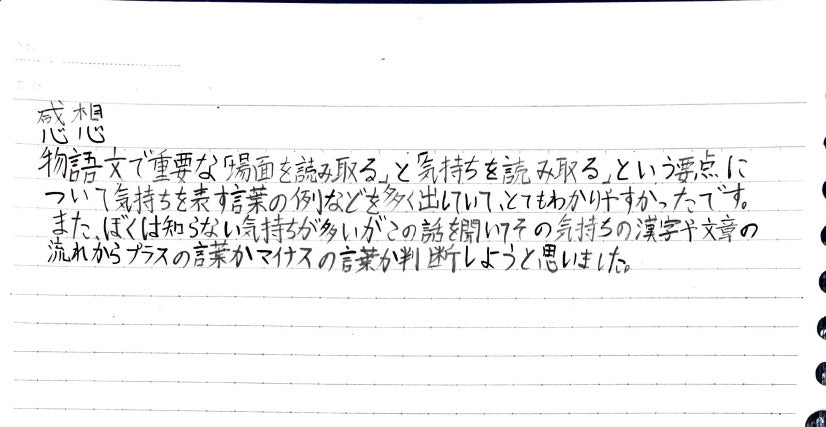 感想
物語文で重要な「場面を読み取る」と「気持ちを読み取る」という要点に
ついて気持ちを表す言葉の例などを多く出していて、とてもわかりやすかったです。
また、ぼくは知らない気持ちが多いがこの話を聞いてその気持ちの漢字や文章の
流れからプラスの言葉かマイナスの言葉か判断しようと思いました。